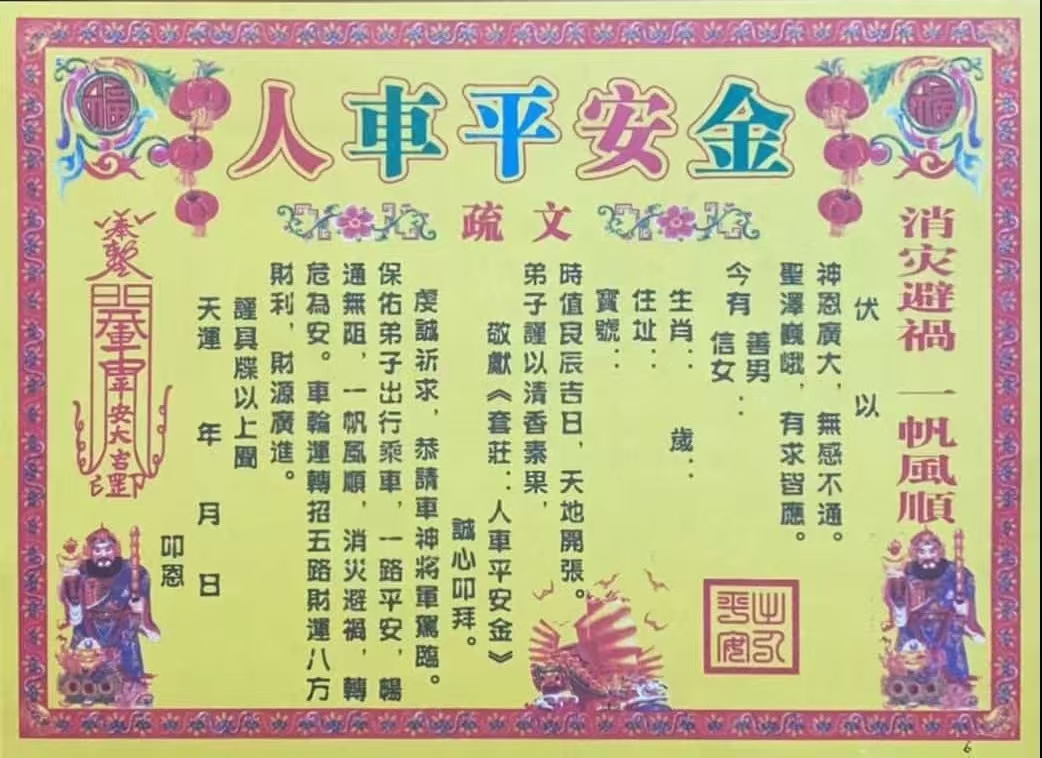 人車平安金
疏文
福
福
消灾避禍 一帆風順
伏以
神恩廣大，無感不通。
聖澤巍峨，有求皆應。
今有 善男 信女：
生肖： 歲：
住址：
寶號：
時值良辰吉日，天地開張。
弟子謹以清香素果，
敬獻《套莊：人車平安金》
誠心叩拜。
虔誠祈求，恭請車神將軍駕臨。
保佑弟子出行乘車，一路平安，暢
通無阻，一帆風順，消灾避禍，轉
危為安。車輪運轉招五路財運八方
財利，財源廣進。
謹具牒以上聞
天運 年 月 日
叩恩
平安大吉罡
出入平安
6